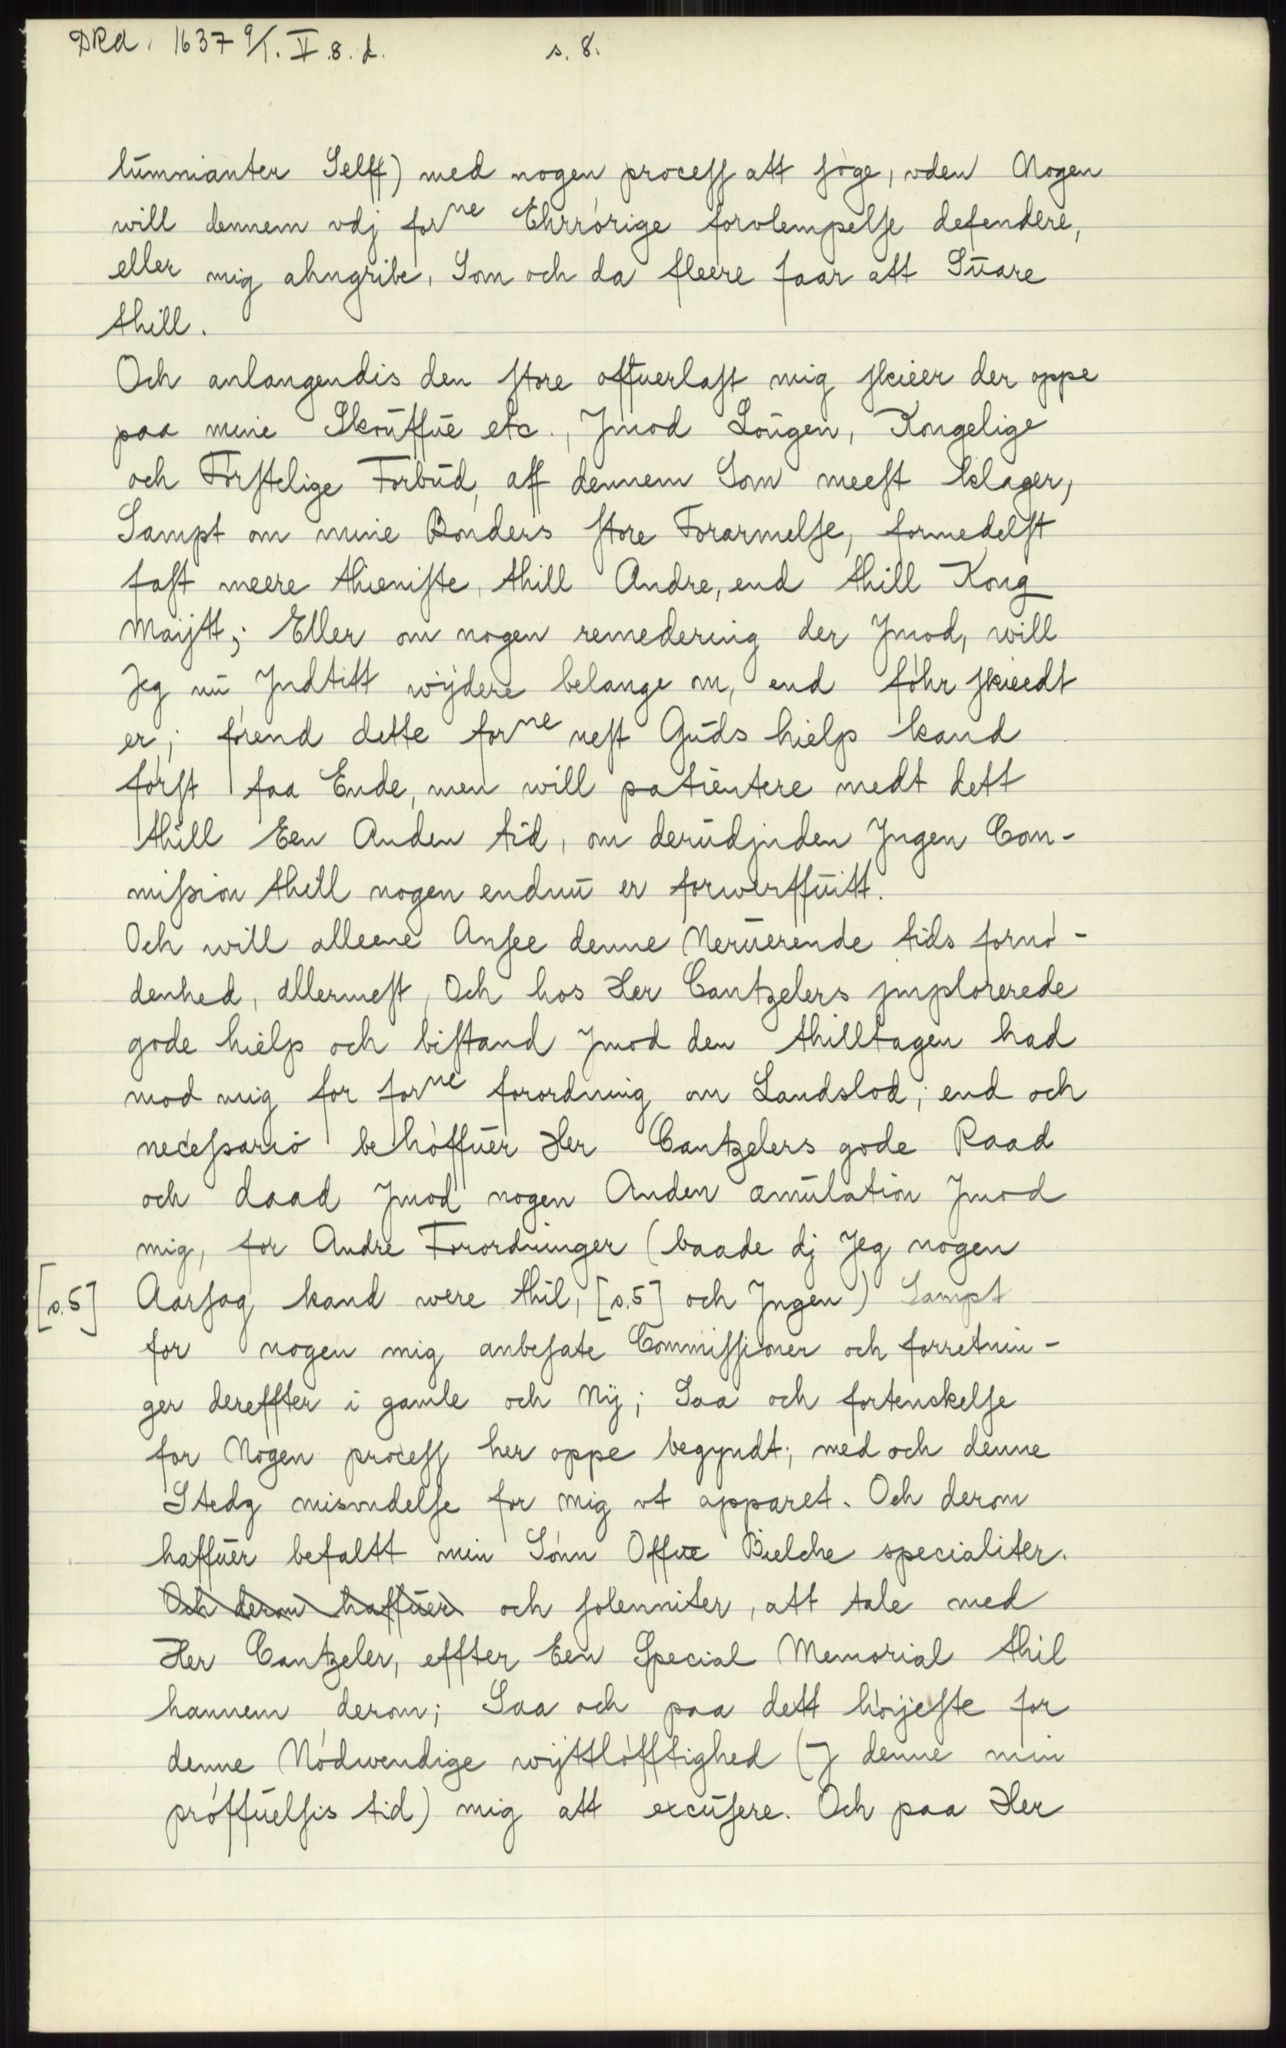 DRA. 1637 9/1. V.8.d. s. 8.
lumnianter Selff) med nogen process att søge, vden Nogen
will dennem vdj forne Ehrrörige forolempelse defendere,
eller mig ahngribe, Som och da fleere faar att Suare
thill.
Och anlangendis den store offuerlast mig skieer der oppe
paa mine Skouffue etc., Jmod Lougen, Kongelige
och Förstelige Forbud, aff dennem Som meest klager,
Sampt om mine Bönders store Forarmelse, formedelst
fast meere thieniste, thill Andre, end thill Kong
Maijtt; Eller om nogen remedering der Jmod, will
Jeg nu Jndtitt wijdere belange om, end föhr skieedt
er; förend dette forne nest Guds hielp kand
först faa Ende, men will patientere medt dett
thill Een Anden tid, om derudjnden Jngen Com-
mission thill nogen endnu er forwerffuitt.
Och will alleene Ansee denne Neruerende tids fornö-
denhed, allermest, Och hos Her Cantzelers jmplorerede
gode hielp och bistand Jmod den thilltagen had
mod mig for forne forordning om Landslod; end och
necessario behöffuer Her Cantzelers gode Raad
och daad Jmod nogen Anden æmulation Jmod
mig, for Andre Forordninger (baade dj Jeg nogen
[s.5] Aarsag kand were thil, [s.5] och Jngen) Sampt
for nogen mig anbefate Commissioner och forretnin-
ger dereffter i gamle och Nÿ; Saa och fortenskelse
for Nogen process her oppe begyndt; med och denne
Stedz misvndelse for mig vt apparet. Och derom
haffuer befaltt min Sönn Offue Bielche specialiter.
Och derom haffuer och solenniter, att tale med
Her Cantzeler, effter Een Special Memorial thil
hannem derom; Saa och paa dett höyeste for
denne Nödwendige wijttlöfftighed (J denne min
pröffuelsis tid) mig att excusere. Och paa Her